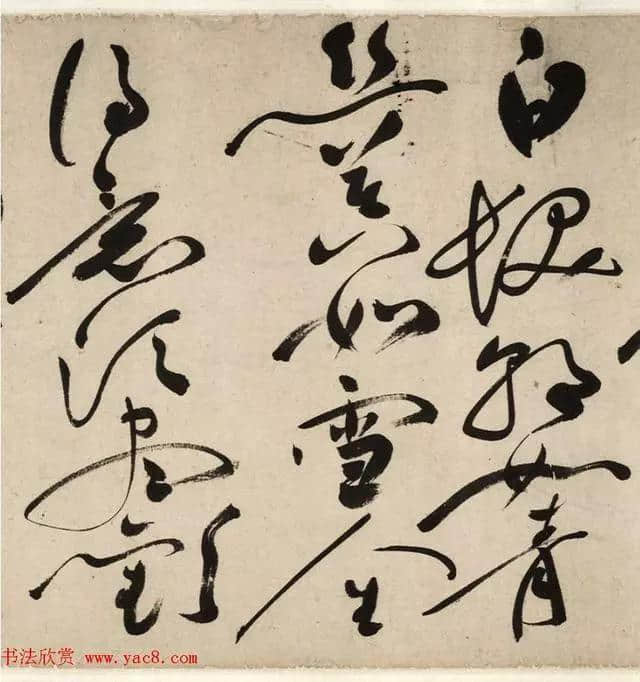 白髮朝如青
絲暮如雪人生
得意須盡歡
书法欣赏 www.yac8.com